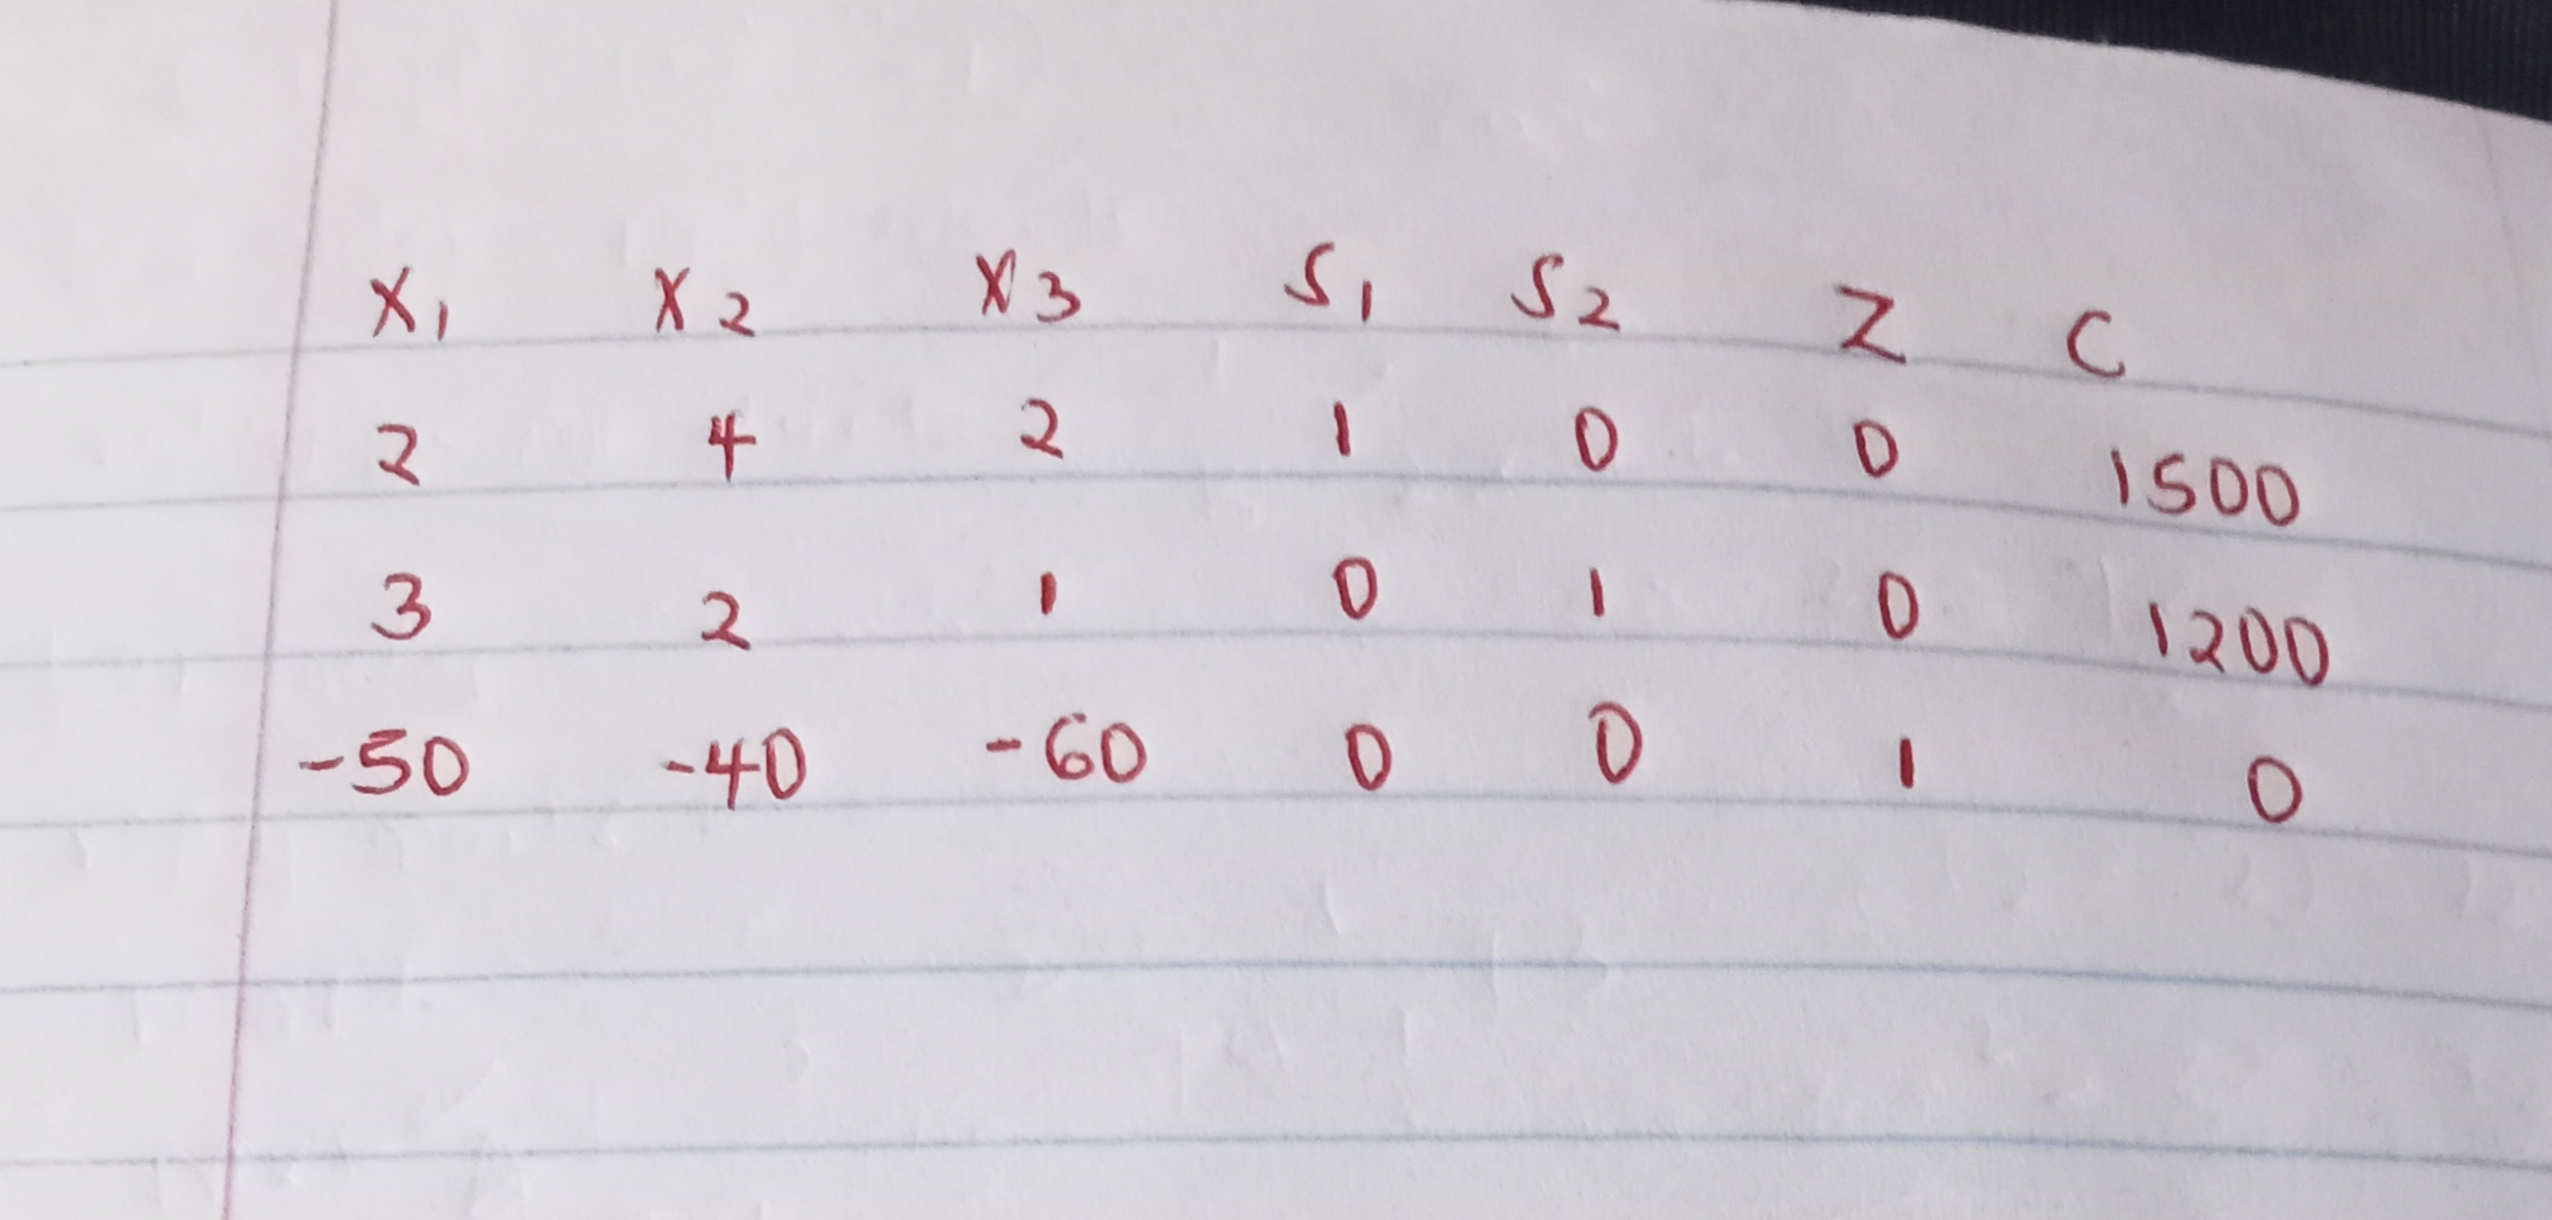 X₁ X₂ X₃ S₁ S₂ Z C
2 4 2 1 0 0 1500
3 2 1 0 1 0 1200
-50 -40 -60 0 0 1 0